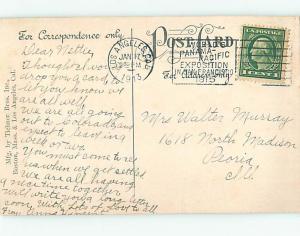 For Correspondence only
POSTCARD
LOS ANGELES, CAL.
JAN
1913
PANAMA-
PACIFIC
EXPOSITION
IN SAN FRANCISCO
1915
1 CENT 1
Dear Nettie
Thought I would
drop you a card to
let you know we
are all well
we are all going
out to
expect to leaving
You must come to see
us when we get settled
We are all having
a nice time together
will write you a long letter
soon. With lots of Love to all
From
Mrs Walter Murray
1618 North Madison
Peoria
Ill.
Mfg. by Tichnor Bros. Inc.,
Boston, Mass. & Los Angeles, Cal.